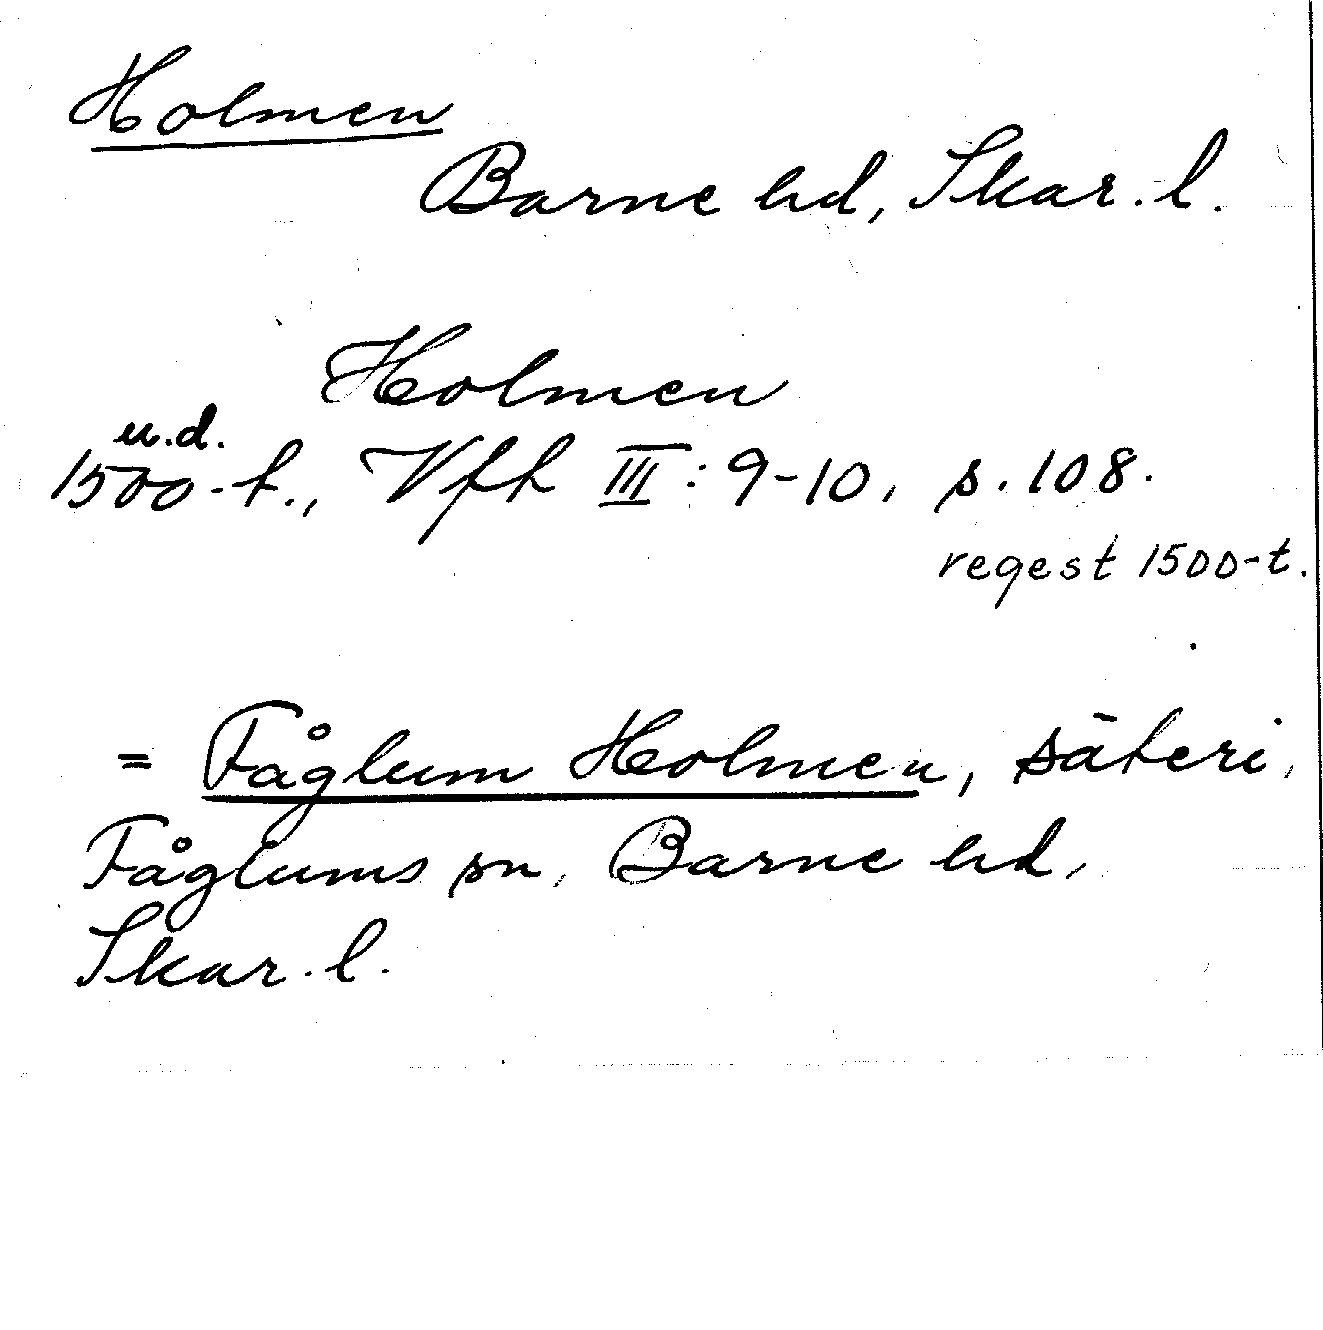 Holmen
Barne hd, Skar. l.
Holmen
u.d.
1500-t., Vfh III: 9-10, s. 108.
regest 1500-t.
= Fåglum Holmen, säteri,
Fåglums sn, Barne hd,
Skar. l.